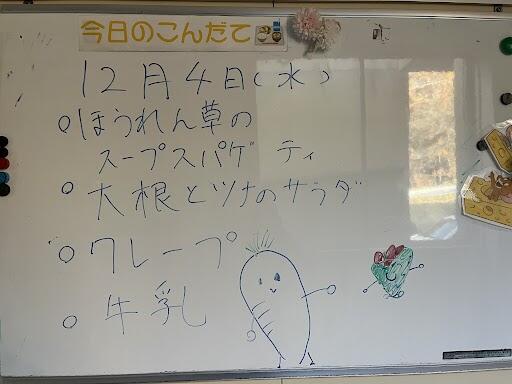 今日のこんだて
12月4日(水)
○ほうれん草の
スープスパゲティ
○大根とツナのサラダ
○クレープ
○牛乳